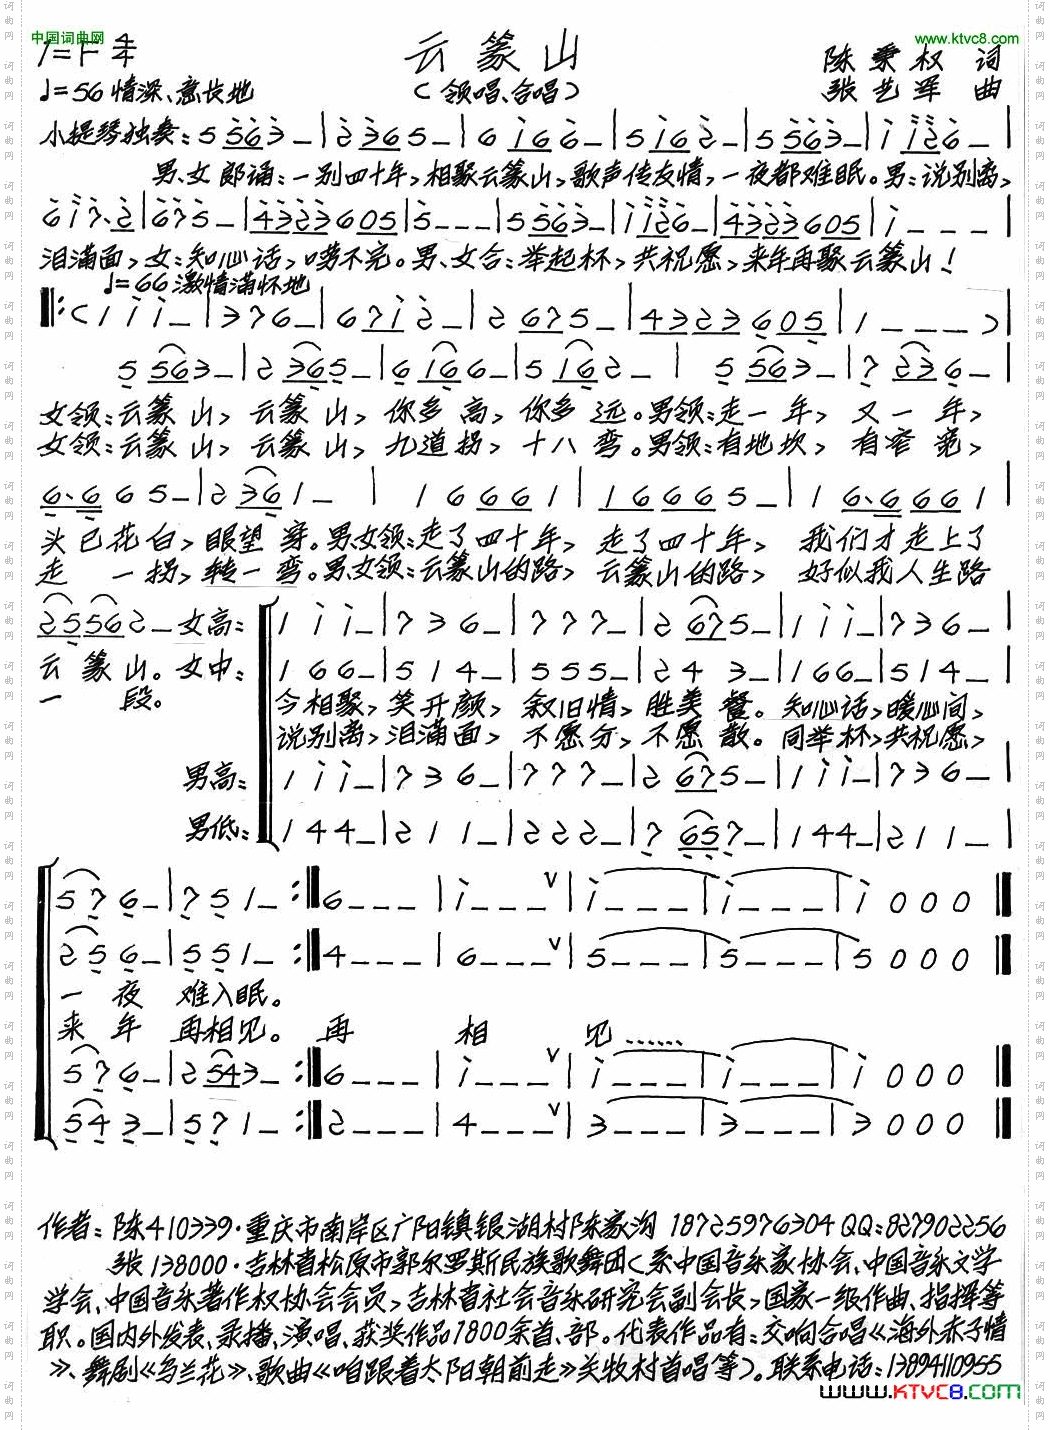 中国词曲网
www.ktvc8.com
1=F 4/4
云篆山
陈秉权 词
♩=56 情深、意长地
(领唱、合唱)
张艺军 曲
小提琴独奏: 5 5 5 6 3 – | 2 3 6 5 – | 6 1 6 6 – | 5 1 6 2 – | 5 5 5 6 3 – | 1 1 1 2 6 – |
男、女 郎诵:一别四十年,相聚云篆山,歌声传友情,一夜都难眠。男:说别离,
6 1 7、2 | 6 7 5 – | 4 3 2 3 6 0 5 | 5 – – – | 5 5 5 6 3 – | 1 1 1 2 6 – | 4 3 2 3 6 0 5 | 1 – – – |
泪满面,女:知心话,唠不完。男、女合:举起杯,共祝愿,来年再聚云篆山!
♩=66 激情满怀地
‖: ( 1 1 1 – | 3 7 6 – | 6 7 1 2 – | 2 6 7 5 – | 4 3 2 3 6 0 5 | 1 – – – ) |
5 5 6 3 – | 2 3 6 5 – | 6 1 6 6 – | 5 1 6 2 – | 5 5 6 3 – | 7 2 3 6 – |
女领:云篆 山, 云篆 山, 你多 高, 你多 远。男领:走一 年, 又 一 年,
女领:云篆 山, 云篆 山, 九道 拐, 十八 弯。男领:有地坎, 有窄 宽,
6、6 6 5 – | 2 3 6 1 – | 1 6 6 6 1 | 1 6 6 6 5 – | 1 6、6 6 6 1 |
头 已花白,眼望 穿。男女领:走了四十年, 走了四十年, 我们才走上了
走 一拐,转一 弯。男女领:云篆山的路, 云篆山的路, 好似我人生路
2 5 5 6 2 – 女高: 1 1 1 – | 7 3 6 – | 7 7 7 – | 2 6 7 5 – | 1 1 1 – | 7 3 6 – |
云 篆 山。女中: 1 6 6 – | 5 1 4 – | 5 5 5 – | 2 4 3 – | 1 6 6 – | 5 1 4 – |
一 段。
今相聚,笑开颜, 叙旧情,胜美 餐。知心话,暖心间,
说别离,泪满面, 不愿分,不愿 散。同举杯,共祝愿,
男高: 1 1 1 – | 7 3 6 – | 7 7 7 – | 2 6 7 5 – | 1 1 1 – | 7 3 6 – |
男低: 1 4 4 – | 2 1 1 – | 2 2 2 – | 7 6 5 7 – | 1 4 4 – | 2 1 1 – |
5 7 6 – | 7 5 1 – :‖ 6 – – – | 1 – – – ∨ | 1 – – – | 1 – – – | 1 0 0 0 ‖
2 5 6 – | 5 5 1 – :‖ 4 – – – | 6 – – – ∨ | 5 – – – | 5 – – – | 5 0 0 0 ‖
一 夜 难入眠。
来 年 再相见。 再 相 见……
5 7 6 – | 2 5 4 3 – :‖ 6 – – – | 1 – – – ∨ | 1 – – – | 1 – – – | 1 0 0 0 ‖
5 4 3 – | 5 7 1 – :‖ 2 – – – | 4 – – – ∨ | 3 – – – | 3 – – – | 3 0 0 0 ‖
作者:陈410339·重庆市南岸区广阳镇银湖村陈家沟 18725976304 QQ:827902256
张138000·吉林省松原市郭尔罗斯民族歌舞团(系中国音乐家协会、中国音乐文学
学会、中国音乐著作权协会会员,吉林省社会音乐研究会副会长,国家一级作曲、指挥等
职。国内外发表、录播、演唱、获奖作品1800余首、部。代表作品有:交响合唱《海外赤子情
》、舞剧《乌兰花》、歌曲《咱跟着太阳朝前走》关牧村首唱等)。联系电话:13894110955
WWW.KTVC8.COM